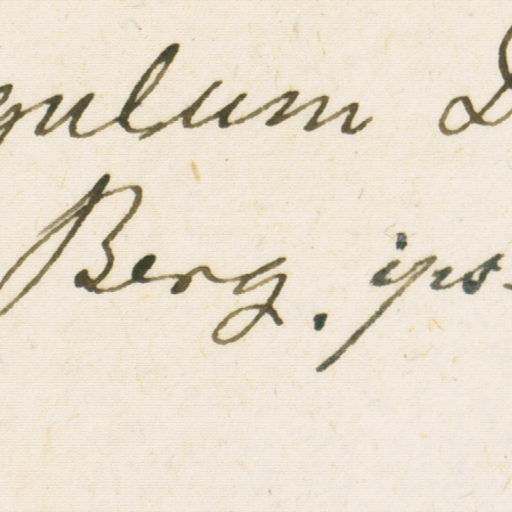 gulum D
Berg. ips